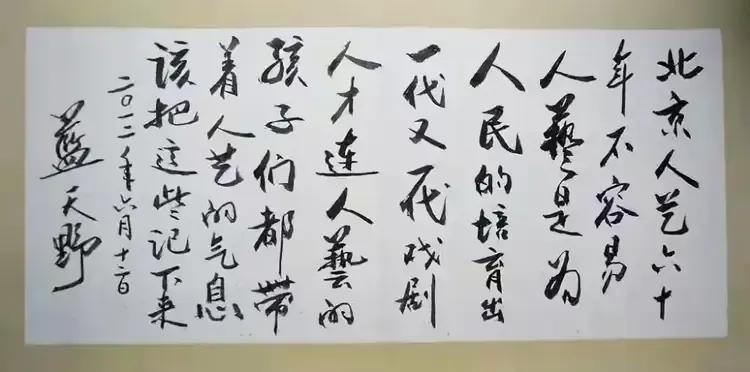 北京人艺六十
年不容易
人藝是为
人民的培育出
一代又一代戏剧
人才连人藝的
孩子们都带
着人艺的气息
该把这些记下来
二〇一二年六月十二日
藍天野